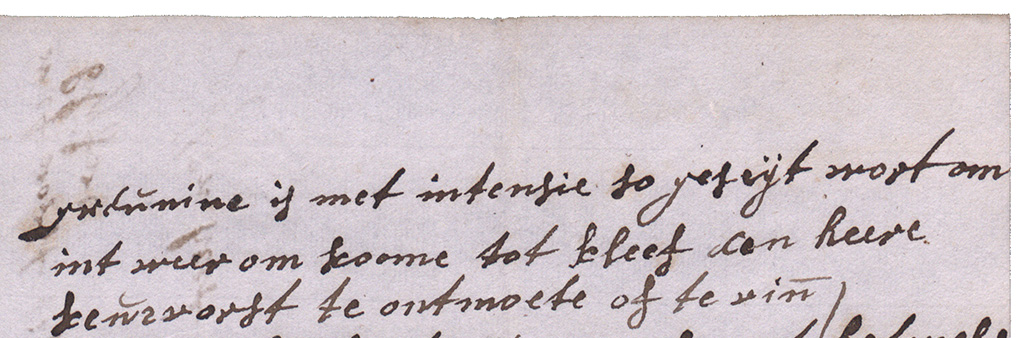 is met intensie so geseijt wort om
int weer om koome tot kleef den heere
keurvorst te ontmoete of te vin